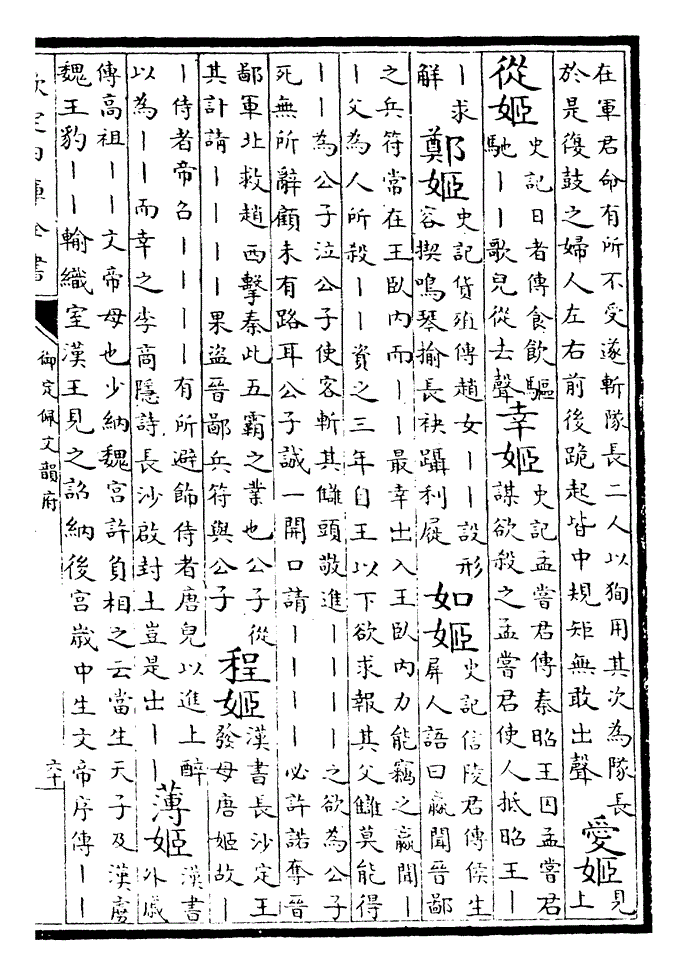 在軍君命有所不受遂斬隊長二人以狥用其次為隊長
於是復鼓之婦人左右前後跪起皆中規矩無敢出聲 愛姬 見
上
從姬 史記日者傳食飲驅
馳〡〡歌兒從去聲 幸姬 史記孟嘗君傳秦昭王囚孟嘗君
謀欲殺之孟嘗君使人抵昭王〡
〡求
解 鄭姬 史記貨殖傳趙女〡〡設形
容揳鳴琴揄長袂躡利屣 如姬 史記信陵君傳侯生
屏人語曰嬴聞晉鄙
之兵符常在王臥内而〡〡最幸出入王臥内力能竊之嬴聞〡
〡父為人所殺〡〡資之三年自王以下欲求報其父讎莫能得
〡〡為公子泣公子使客斬其讎頭敬進〡〡〡〡之欲為公子
死無所辭顧未有路耳公子誠一開口請〡〡〡〡必許諾奪晉
鄙軍北救趙西擊秦此五霸之業也公子從
其計請〡〡〡〡果盜晉鄙兵符與公子 程姬 漢書長沙定王
發母唐姬故〡
〡侍者帝召〡〡〡〡有所避飾侍者唐兒以進上醉
以為〡〡而幸之李商隱詩長沙啟封土豈是出〡〡 薄姬 漢書
外戚
傳高祖〡〡文帝母也少納魏宫許負相之云當生天子及漢虜
魏王豹〡〡輸織室漢王見之詔納後宫歲中生文帝序傳〡〡
欽定四庫全書
御定佩文韻府
六十